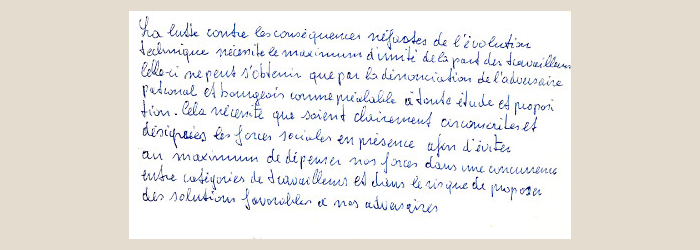 La lutte contre les conséquences néfastes de l'évolution
technique nécessite le maximum d'unité de la part des travailleurs
Celle-ci ne peut s'obtenir que par la dénonciation de l'adversaire
patronal et bourgeois comme préalable à toute étude et proposi
tion. Cela nécessite que soient clairement circonscrites et
désignées les forces sociales en présence afin d'éviter
au maximum de dépenser nos forces dans une concurrence
entre catégories de travailleurs et dans le risque de proposer
des solutions favorables à nos adversaires